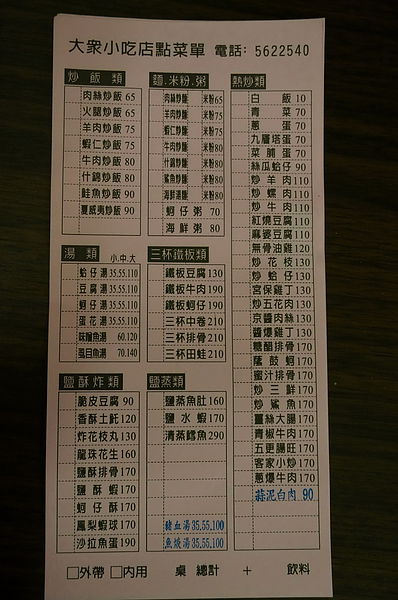 大衆小吃店點菜單 電話: 5622540
炒飯類
肉絲炒飯 65
火腿炒飯 65
羊肉炒飯 75
蝦仁炒飯 75
牛肉炒飯 80
什錦炒飯 80
鮭魚炒飯 90
夏威夷炒飯 90
麵.米粉.粥
肉絲炒麵 米粉 65
羊肉炒麵 米粉 75
蝦仁炒麵 米粉 75
牛肉炒麵 米粉 80
什錦炒麵 米粉 80
鯊魚炒麵 米粉 80
海鮮湯麵 米粉 80
蚵仔粥 70
海鮮粥 80
熱炒類
白飯 10
青菜 70
蔥蛋 70
九層塔蛋 70
菜脯蛋 70
絲瓜蛤仔 90
炒羊肉 110
炒螺肉 110
炒牛肉 110
紅燒豆腐 110
麻婆豆腐 110
無骨油雞 120
炒花枝 130
炒蛤仔 130
宮保雞丁 130
炒五花肉 130
京醬肉絲 130
醬爆雞丁 130
糖醋排骨 170
蔭鼓蚵 170
蜜汁排骨 170
炒三鮮 170
炒鯊魚 170
薑絲大腸 170
青椒牛肉 170
五更腸旺 170
客家小炒 170
蔥爆牛肉 170
蒜泥白肉 90
湯類 小.中.大
蛤仔湯 35.55.110
豆腐湯 35.55.110
蚵仔湯 35.55.110
蛋花湯 35.55.110
味噌魚湯 60.120
虱目魚湯 70.140
三杯鐵板類
鐵板豆腐 130
鐵板牛肉 190
鐵板蚵仔 190
三杯中卷 210
三杯排骨 210
三杯田蛙 210
鹽酥炸類
脆皮豆腐 90
香酥土魠 120
炸花枝丸 130
龍珠花生 160
鹽酥排骨 170
鹽酥蝦 170
蚵仔酥 170
鳳梨蝦球 170
沙拉魚蛋 190
鹽蒸類
鹽蒸魚肚 160
鹽水蝦 170
清蒸鱈魚 290
豬血湯 35.55.100
魚焿湯 35.55.100
□外帶 □內用 桌 總計 + 飲料